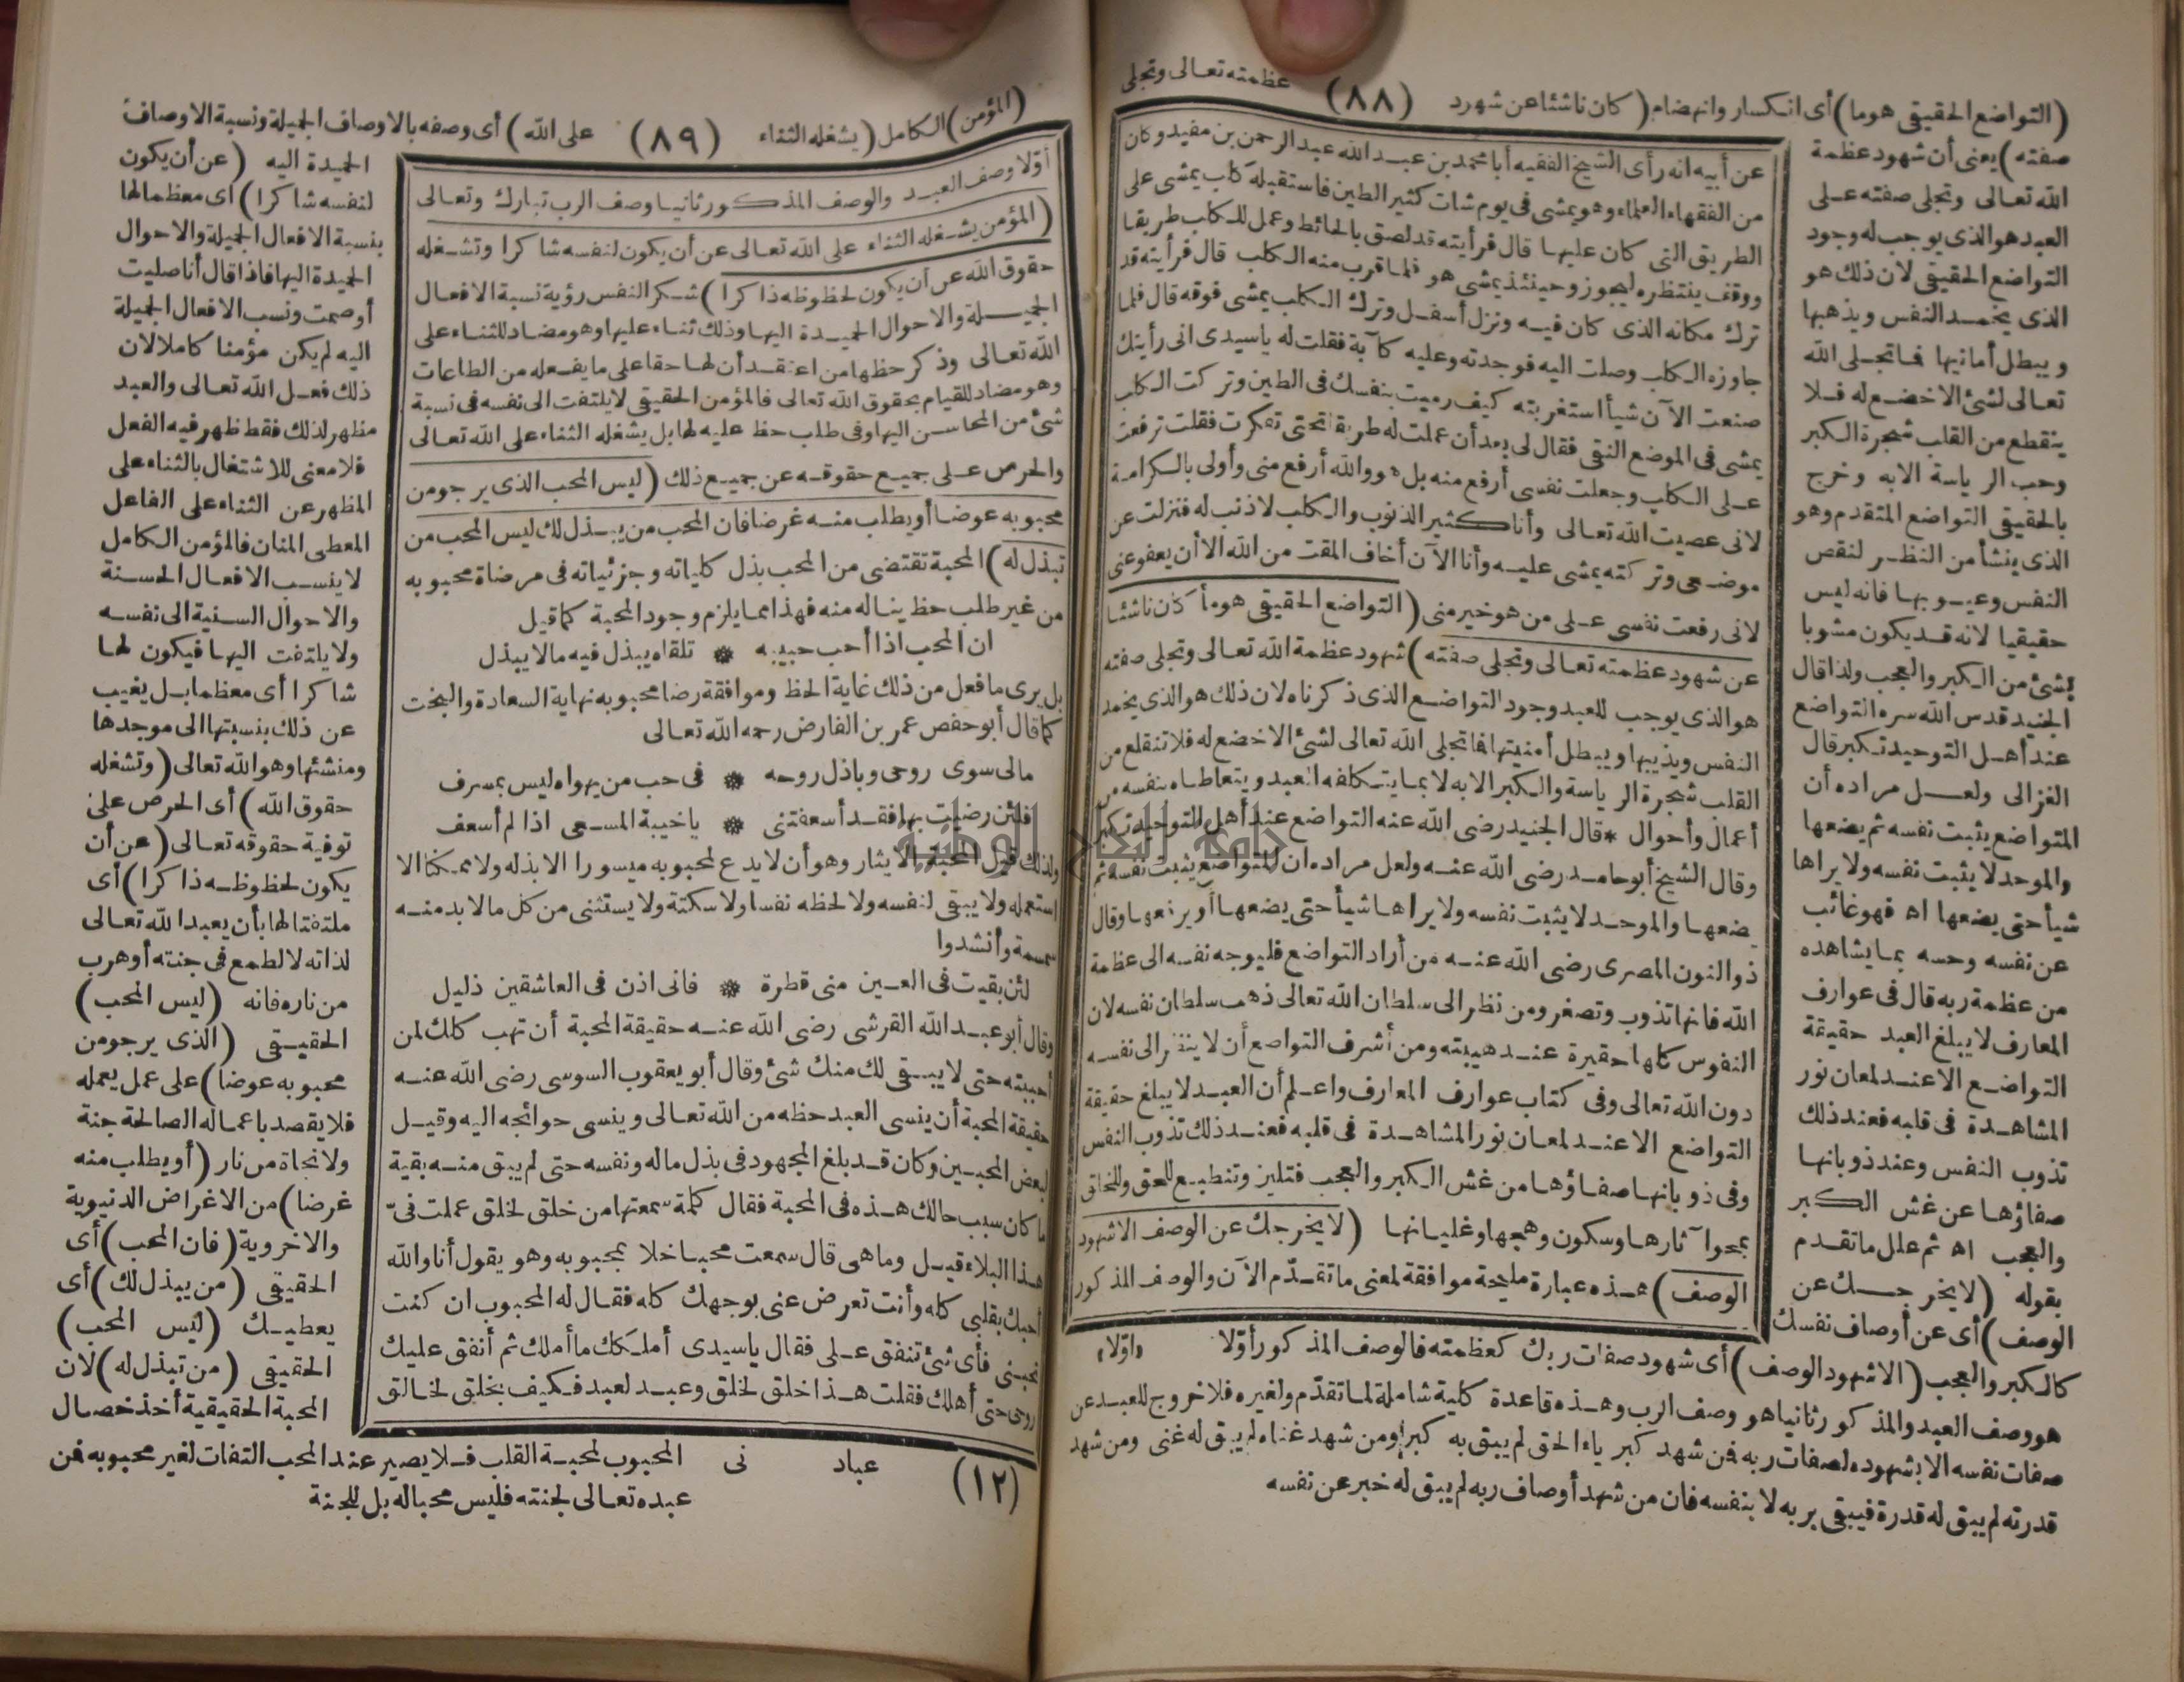 (التواضع الحقيقى هوما) أى انكسار وانهضام (كان ناشئا عن شهود (٨٨) عظمته تعالى وتجلى
صفته) يعنى أن شهود عظمة
الله تعالى وتجلى صفته على
العبد هو الذى يوجب له وجود
التواضع الحقيقى لان ذلك هو
الذى يخمد النفس ويذهبها
ويبطل أمانيها فما تجلى الله
تعالى لشئ الاخضع له فلا
ينقطع من القلب شجرة الكبر
وحب الرياسة الابه وخرج
بالحقيقى التواضع المتقدم وهو
الذى ينشأ من النظر لنقص
النفس وعيوبها فانه ليس
حقيقيا لانه قد يكون مشوبا
بشئ من الكبر والعجب ولذا قال
الجنيد قدس الله سره التواضع
عند أهل التوحيد تكبر قال
الغزالى ولعل مراده أن
المتواضع يثبت نفسه ثم يضعها
والموحد لا يثبت نفسه ولا يراها
شيأ حتى يضعها اه فهو غائب
عن نفسه وحسه بما يشاهده
من عظمة ربه قال فى عوارف
المعارف لا يبلغ العبد حقيقة
التواضع الا عند لمعان نور
المشاهدة فى قلبه فعند ذلك
تذوب النفس وعند ذوبانها
صفاؤها عن غش الكبر
والعجب اه ثم علل ما تقدم
بقوله (لا يخرجك عن
الوصف) أى عن أوصاف نفسك
كالكبر والعجب (الا شهود الوصف) أى شهود صفات ربك كعظمته فالوصف المذكور أوّلا
هو وصف العبد والمذكور ثانيا هو وصف الرب وهذه قاعدة كلية شاملة لما تقدّم ولغيره فلا خروج للعبد عن
صفات نفسه الا بشهوده لصفات ربه فمن شهد كبرياء الحق لم يبق به كبر ومن شهد غناه لم يبق له غنى ومن شهد
قدرته لم يبق له قدرة فيبقى بربه لا بنفسه فان من شهد أوصاف ربه لم يبق له خبر عن نفسه
عن أبيه انه رأى الشيخ الفقيه أبا محمد بن عبد الله عبد الرحمن بن مفيد وكان
من الفقهاء العلماء وهو يمشى فى يوم شات كثير الطين فاستقبله كاب يمشى على
الطريق التى كان عليها قال فرأيته قد لصق بالحائط وعمل للكاب طريقا
ووقف ينتظره ليجوز وحينئذ يمشى هو فلما قرب منه الكلب قال فرأيته قد
ترك مكانه الذى كان فيه ونزل أسفل وترك الكلب يمشى فوقه قال فلما
جاوزه الكاب وصلت اليه فوجدته وعليه كآبة فقلت له ياسيدى انى رأيتك
صنعت الآن شيأ استغربته كيف رميت بنفسك فى الطين وتركت الكاب
يمشى فى الموضع النقى فقال لى بعد أن عملت له طريقا تحتى تفكرت فقلت ترفعت
على الكاب وجعلت نفسى أرفع منه بل هو والله أرفع منى وأولى بالكرامة
لانى عصيت الله تعالى وأنا كثير الذنوب والكلب لا ذنب له فنزلت عن
موضعى وتركته يمشى عليه وأنا الآن أخاف المقت من الله الا أن يعفو عنى
لانى رفعت نفسى على من هو خير منى (التواضع الحقيقى هو ما كان ناشئا
عن شهود عظمته تعالى وتجلى صفته) شهود عظمة الله تعالى وتجلى صفته
هو الذى يوجب للعبد وجود التواضع الذى ذكرناه لان ذلك هو الذى يخمد
النفس ويذيبها ويبطل أمنيتها فما تجلى الله تعالى لشئ الاخضع له فلا تنقلع من
القلب شجرة الرياسة والكبر الا به لا بما يتكلفه العبد ويتعاطاه بنفسه من
أعمال وأحوال * قال الجنيد رضى الله عنه التواضع عند أهل التوحيد تكبر
وقال الشيخ أبو حامد رضى الله عنه ولعل مراده ان المتواضع يثبت نفسه ثم
يضعها والموحد لا يثبت نفسه ولا يراها شيأ حتى يضعها أو يرفعها وقال
ذو النون المصرى رضى الله عنه من أراد التواضع فليوجه نفسه الى عظمة
الله فانها تذوب وتصغر ومن نظر الى سلطان الله تعالى ذهب سلطان نفسه لان
النفوس كلها حقيرة عند هيبته ومن أشرف التواضع أن لا ينظر الى نفسه
دون الله تعالى وفى كتاب عوارف المعارف واعلم أن العبد لا يبلغ حقيقة
التواضع الا عند لمعان نور المشاهدة فى قلبه فعند ذلك تذوب النفس
وفى ذوبانها صفاؤها من غش الكبر والعجب فتلين وتنطبع للحق وللخلق
بمحو آثارها وسكون وهجها وغليانها (لا يخرجك عن الوصف الا شهود
الوصف) هذه عبارة مليحة موافقة لمعنى ما تقدّم الآن والوصف المذكور
«اوّلا»
(المؤمن) الكامل (يشغله الثناء (٨٩) على الله) أى وصفه بالاوصاف الجميلة ونسبة الاوصاف
أوّلا وصف العبد والوصف المذكور ثانيا وصف الرب تبارك وتعالى
(المؤمن يشغله الثناء على الله تعالى عن أن يكون لنفسه شاكرا وتشغله
حقوق الله عن أن يكون لحظوظه ذاكرا) شكر النفس رؤية نسبة الافعال
الجميلة والاحوال الحميدة اليها وذلك ثناء عليها وهو مضاد للثناء على
الله تعالى وذكر حظها من اعتقد أن لها حقا على ما يفعله من الطاعات
وهو مضاد للقيام بحقوق الله تعالى فالمؤمن الحقيقى لا يلتفت الى نفسه فى نسبة
شئ من المحاسن اليها وفى طلب حظ عليه لها بل يشغله الثناء على الله تعالى
والحرص على جميع حقوقه عن جميع ذلك (ليس المحب الذى يرجو من
محبوبه عوضا أو يطلب منه غرضا فان المحب من يبذل لك ليس المحب من
تبذل له) المحبة تقتضى من المحب بذل كلياته وجزئياته فى مرضاة محبوبه
من غير طلب حظ يناله منه فهذا مما يلزم وجود المحبة كما قيل
ان المحب اذا أحب حبيبه * تلقاه يبذل فيه مالا يبذل
بل يرى ما فعل من ذلك غاية الحظ وموافقة رضا محبوبه نهاية السعادة والبخت
كما قال أبو حفص عمر بن الفارض رحمه الله تعالى
مالى سوى روحى وباذل روحه * فى حب من يهواه ليس بمسرف
فلئن رضيت بها فقد أسعفتنى * ياخيبة المسعى اذا لم أسعف
ولذلك قيل المحبة الايثار وهو أن لا يدع لمحبوبه ميسورا الا بذله ولا ممكنا الا
استعمله ولا يبقى لنفسه ولا لحظه نفسا ولا سكتة ولا يستثنى من كل مالا بد منه
سمسمة وأنشدوا
لئن بقيت فى العين منى قطرة * فانى اذن فى العاشقين ذليل
وقال أبو عبد الله القرشى رضى الله عنه حقيقة المحبة أن تهب كلك لمن
أحببته حتى لا يبقى لك منك شئ وقال أبو يعقوب السوسى رضى الله عنه
حقيقة المحبة أن ينسى العبد حظه من الله تعالى وينسى حوائجه اليه وقيل
لبعض المحبين وكان قد بلغ المجهود فى بذل ماله ونفسه حتى لم يبق منه بقية
ما كان سبب حالك هذه فى المحبة فقال كلمة سمعتها من خلق لخلق عملت فىّ
هذا البلاء قيل وما هى قال سمعت محبا خلا بمحبوبه وهو يقول أنا والله
أحبك بقلبى كله وأنت تعرض عنى بوجهك كله فقال له المحبوب ان كنت
تحبنى فأى شئ تنفق على فقال ياسيدى أملكك ما أملك ثم أنفق عليك
روحى حتى أهلك فقلت هذا خلق لخلق وعبد لعبد فكيف بخلق لخالق
الحميدة اليه (عن أن يكون
لنفسه شاكرا) أى معظما لها
بنسبة الافعال الجميلة والاحوال
الحميدة اليها فاذا قال أنا صليت
أو صمت ونسب الافعال الجميلة
اليه لم يكن مؤمنا كاملا لان
ذلك فعل الله تعالى والعبد
مظهر لذلك فقط ظهر فيه الفعل
فلا معنى للاشتغال بالثناء على
المظهر عن الثناء على الفاعل
المعطى المنان فالمؤمن الكامل
لا ينسب الافعال الحسنة
والاحوال السنية الى نفسه
ولا يلتفت اليها فيكون لها
شاكرا أى معظما بل يغيب
عن ذلك بنسبتها الى موجدها
ومنشئها وهو الله تعالى (وتشغله
حقوق الله) أى الحرص على
توفية حقوقه تعالى (عن أن
يكون لحظوظه ذاكرا) أى
ملتفتا لها بأن يعبد الله تعالى
لذاته لا لطمع فى جنته أو هرب
من ناره فانه (ليس المحب)
الحقيقى (الذى يرجو من
محبوبه عوضا) على عمل يعمله
فلا يقصد باعماله الصالحة جنة
ولا نجاة من نار (أو يطلب منه
غرضا) من الاغراض الدنيوية
والاخروية (فان المحب) أى
الحقيقى (من يبذل لك) أى
يعطيك (ليس المحب)
الحقيقى (من تبذل له) لان
المحبة الحقيقية أخذ خصال
(١٢) عباد نى المحبوب لمحبة القلب فلا يصير عند المحب التفات لغير محبوبه فمن
عبده تعالى لجنته فليس محبا له بل للجنة
جامعة النجاح الوطنية